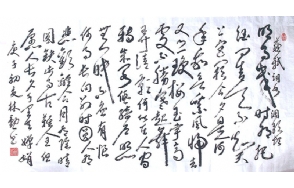 明月几时有把
酒问青天不知天
上宫阙今夕是何
年我欲乘风归去
又恐琼楼玉宇高
处不胜寒起舞
弄清影何似在人间
转朱阁低绮户照
无眠不应有恨
何事长向别时圆人有
悲欢离合月有阴晴
圆缺此事古难全但
愿人长久千里共婵娟
庚子初夏林